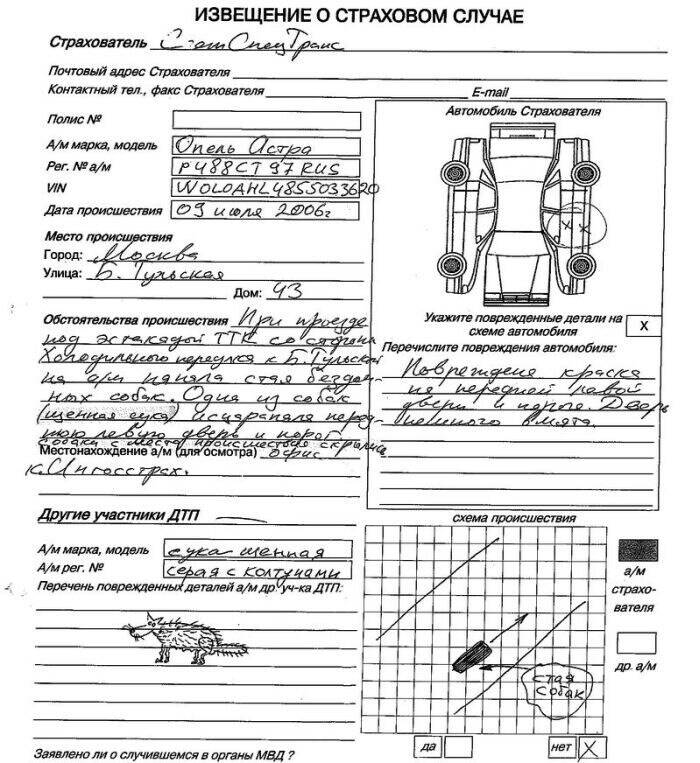 ИЗВЕЩЕНИЕ О СТРАХОВОМ СЛУЧАЕ
Страхователь СтатСпецТранс
Почтовый адрес Страхователя
Контактный тел., факс Страхователя E-mail
Полис №
А/м марка, модель Опель Астра
Рег. № а/м Р488СТ 97 RUS
VIN W0L0AHL4855033620
Дата происшествия 09 июля 2006г
Место происшествия
Город: Москва
Улица: Б. Тульская
Дом: 43
Обстоятельства происшествия При проезде
под эстакадой ТТК со стороны
Холодильного переулка к Б.Тульской
на а/м напала стая бездом-
ных собак. Одна из собак
(щенная сука) исцарапала перед-
нюю левую дверь и порог
Собаки с места происшествия скрылись
Местонахождение а/м (для осмотра) офис
к. Ингосстрах.
Автомобиль Страхователя
x x
Укажите поврежденные детали на
схеме автомобиля
X
Перечислите повреждения автомобиля:
Повреждена краска
на передней левой
двери и пороге. Дверь
немного вмята.
Другие участники ДТП
А/м марка, модель сука щенная
А/м рег. № серая с колтунами
Перечень поврежденных деталей а/м др. уч-ка ДТП:
схема происшествия
стая
собак
а/м
страхо-
вателя
др. а/м
Заявлено ли о случившемся в органы МВД ? да нет X